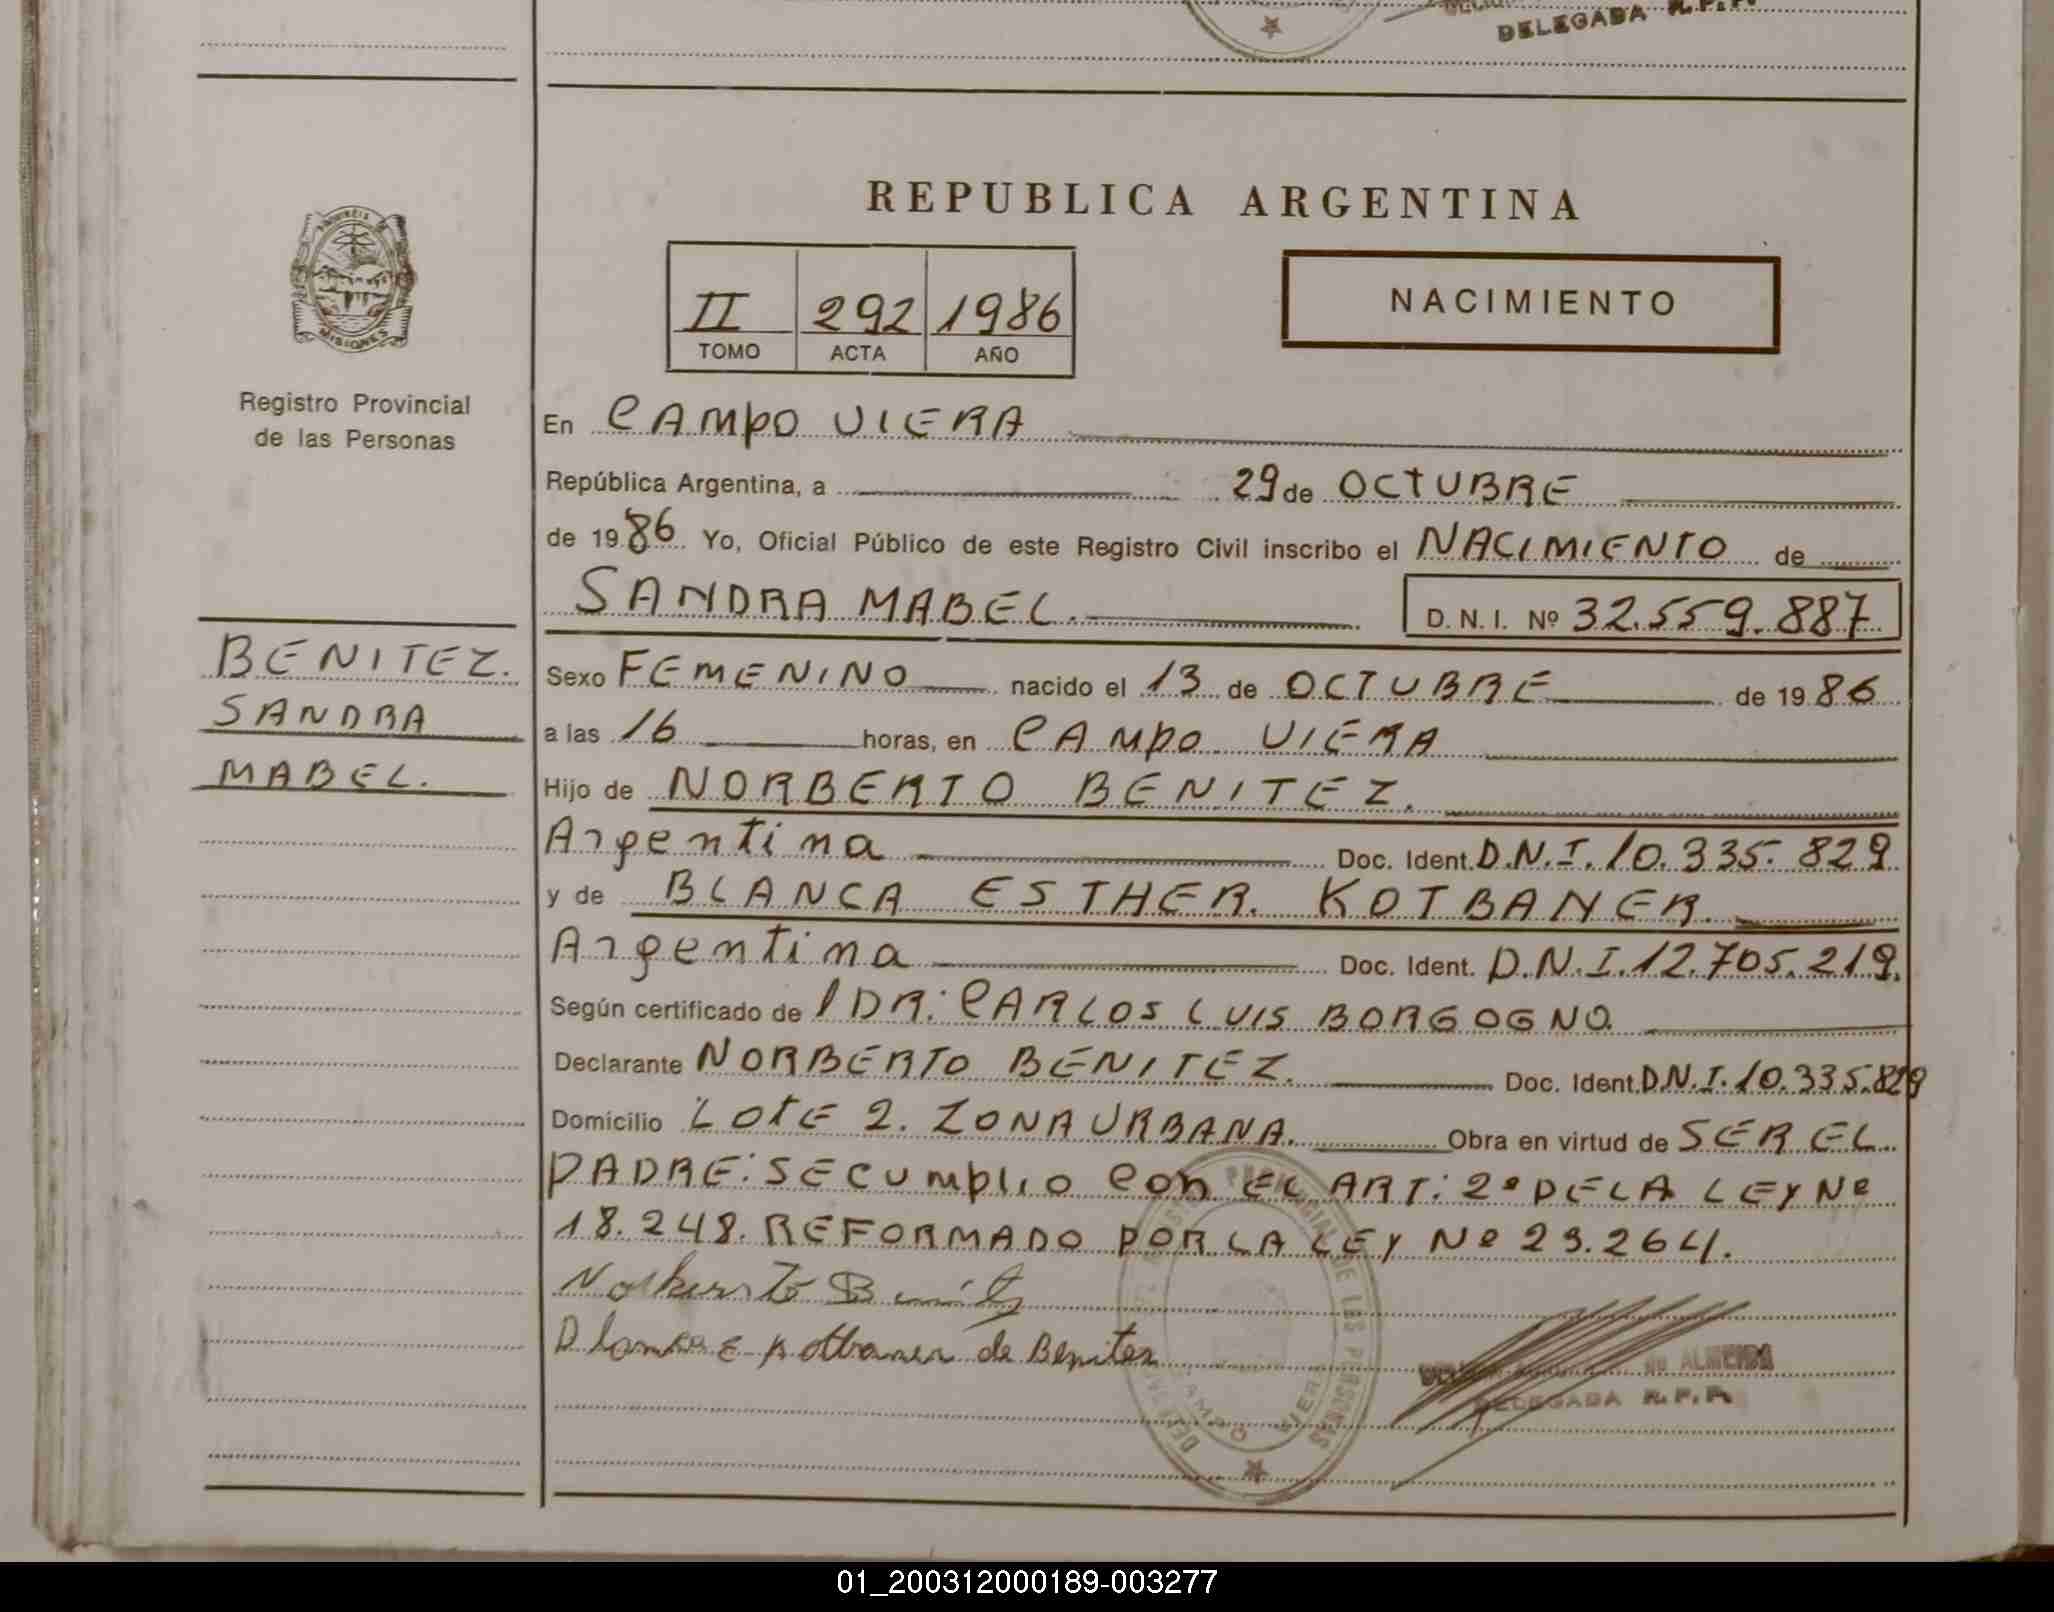 DELEGADA R.P.P.
REPUBLICA ARGENTINA
PROVINCIA DE
MISIONES
II 292 1986
TOMO ACTA AÑO
NACIMIENTO
Registro Provincial
de las Personas
En CAMPO VIERA
República Argentina, a 29 de OCTUBRE
de 1986 Yo, Oficial Público de este Registro Civil inscribo el NACIMIENTO de
SANDRA MABEL. D. N. I. Nº 32.559.887
BENITEZ.
SANDRA
MABEL.
Sexo FEMENINO nacido el 13 de OCTUBRE de 1986
a las 16 horas, en CAMPO VIERA
Hijo de NORBERTO BENITEZ.
Argentina Doc. Ident. D.N.I. 10.335.829
y de BLANCA ESTHER. KOTBANER.
Argentina Doc. Ident. D.N.I. 12.705.219.
Según certificado de DR: CARLOS LUIS BORGOGNO
Declarante NORBERTO BENITEZ. Doc. Ident. D.N.I. 10.335.829
Domicilio LOTE 2. ZONA URBANA. Obra en virtud de SER EL
PADRE: SE CUMPLIO CON EL ART: 2º DE LA LEY Nº
18.248. REFORMADO POR LA LEY Nº 23.264.
Norberto Benitez
Blanca E Kotbaner de Benitez
PROVINCIAL DE LAS PERSONAS
CAMPO VIERA
ALMEIDA
DELEGADA R.P.P.
01_200312000189-003277